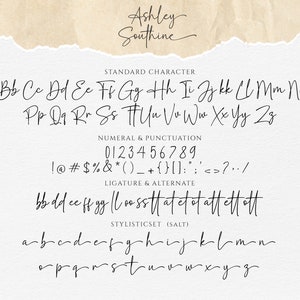 Ashley
Southine
STANDARD CHARACTER
Bb Cc Dd Ee Ff Gg Hh Ii Jj kk Ll Mm N
Pp Qq Rr Ss Tt Uu Vv Ww Xx Yy Zz
NUMERAL & PUNCTUATION
0123456789
!@#$%&*()_+{}[]:";'<>?./
LIGATURE & ALTERNATE
bb dd ee ff gg ll oo ss tt at et ot att ett ott
STYLISTICSET (SALT)
a b c d e f g h i j k l m n
o p q r s t u v w x y z